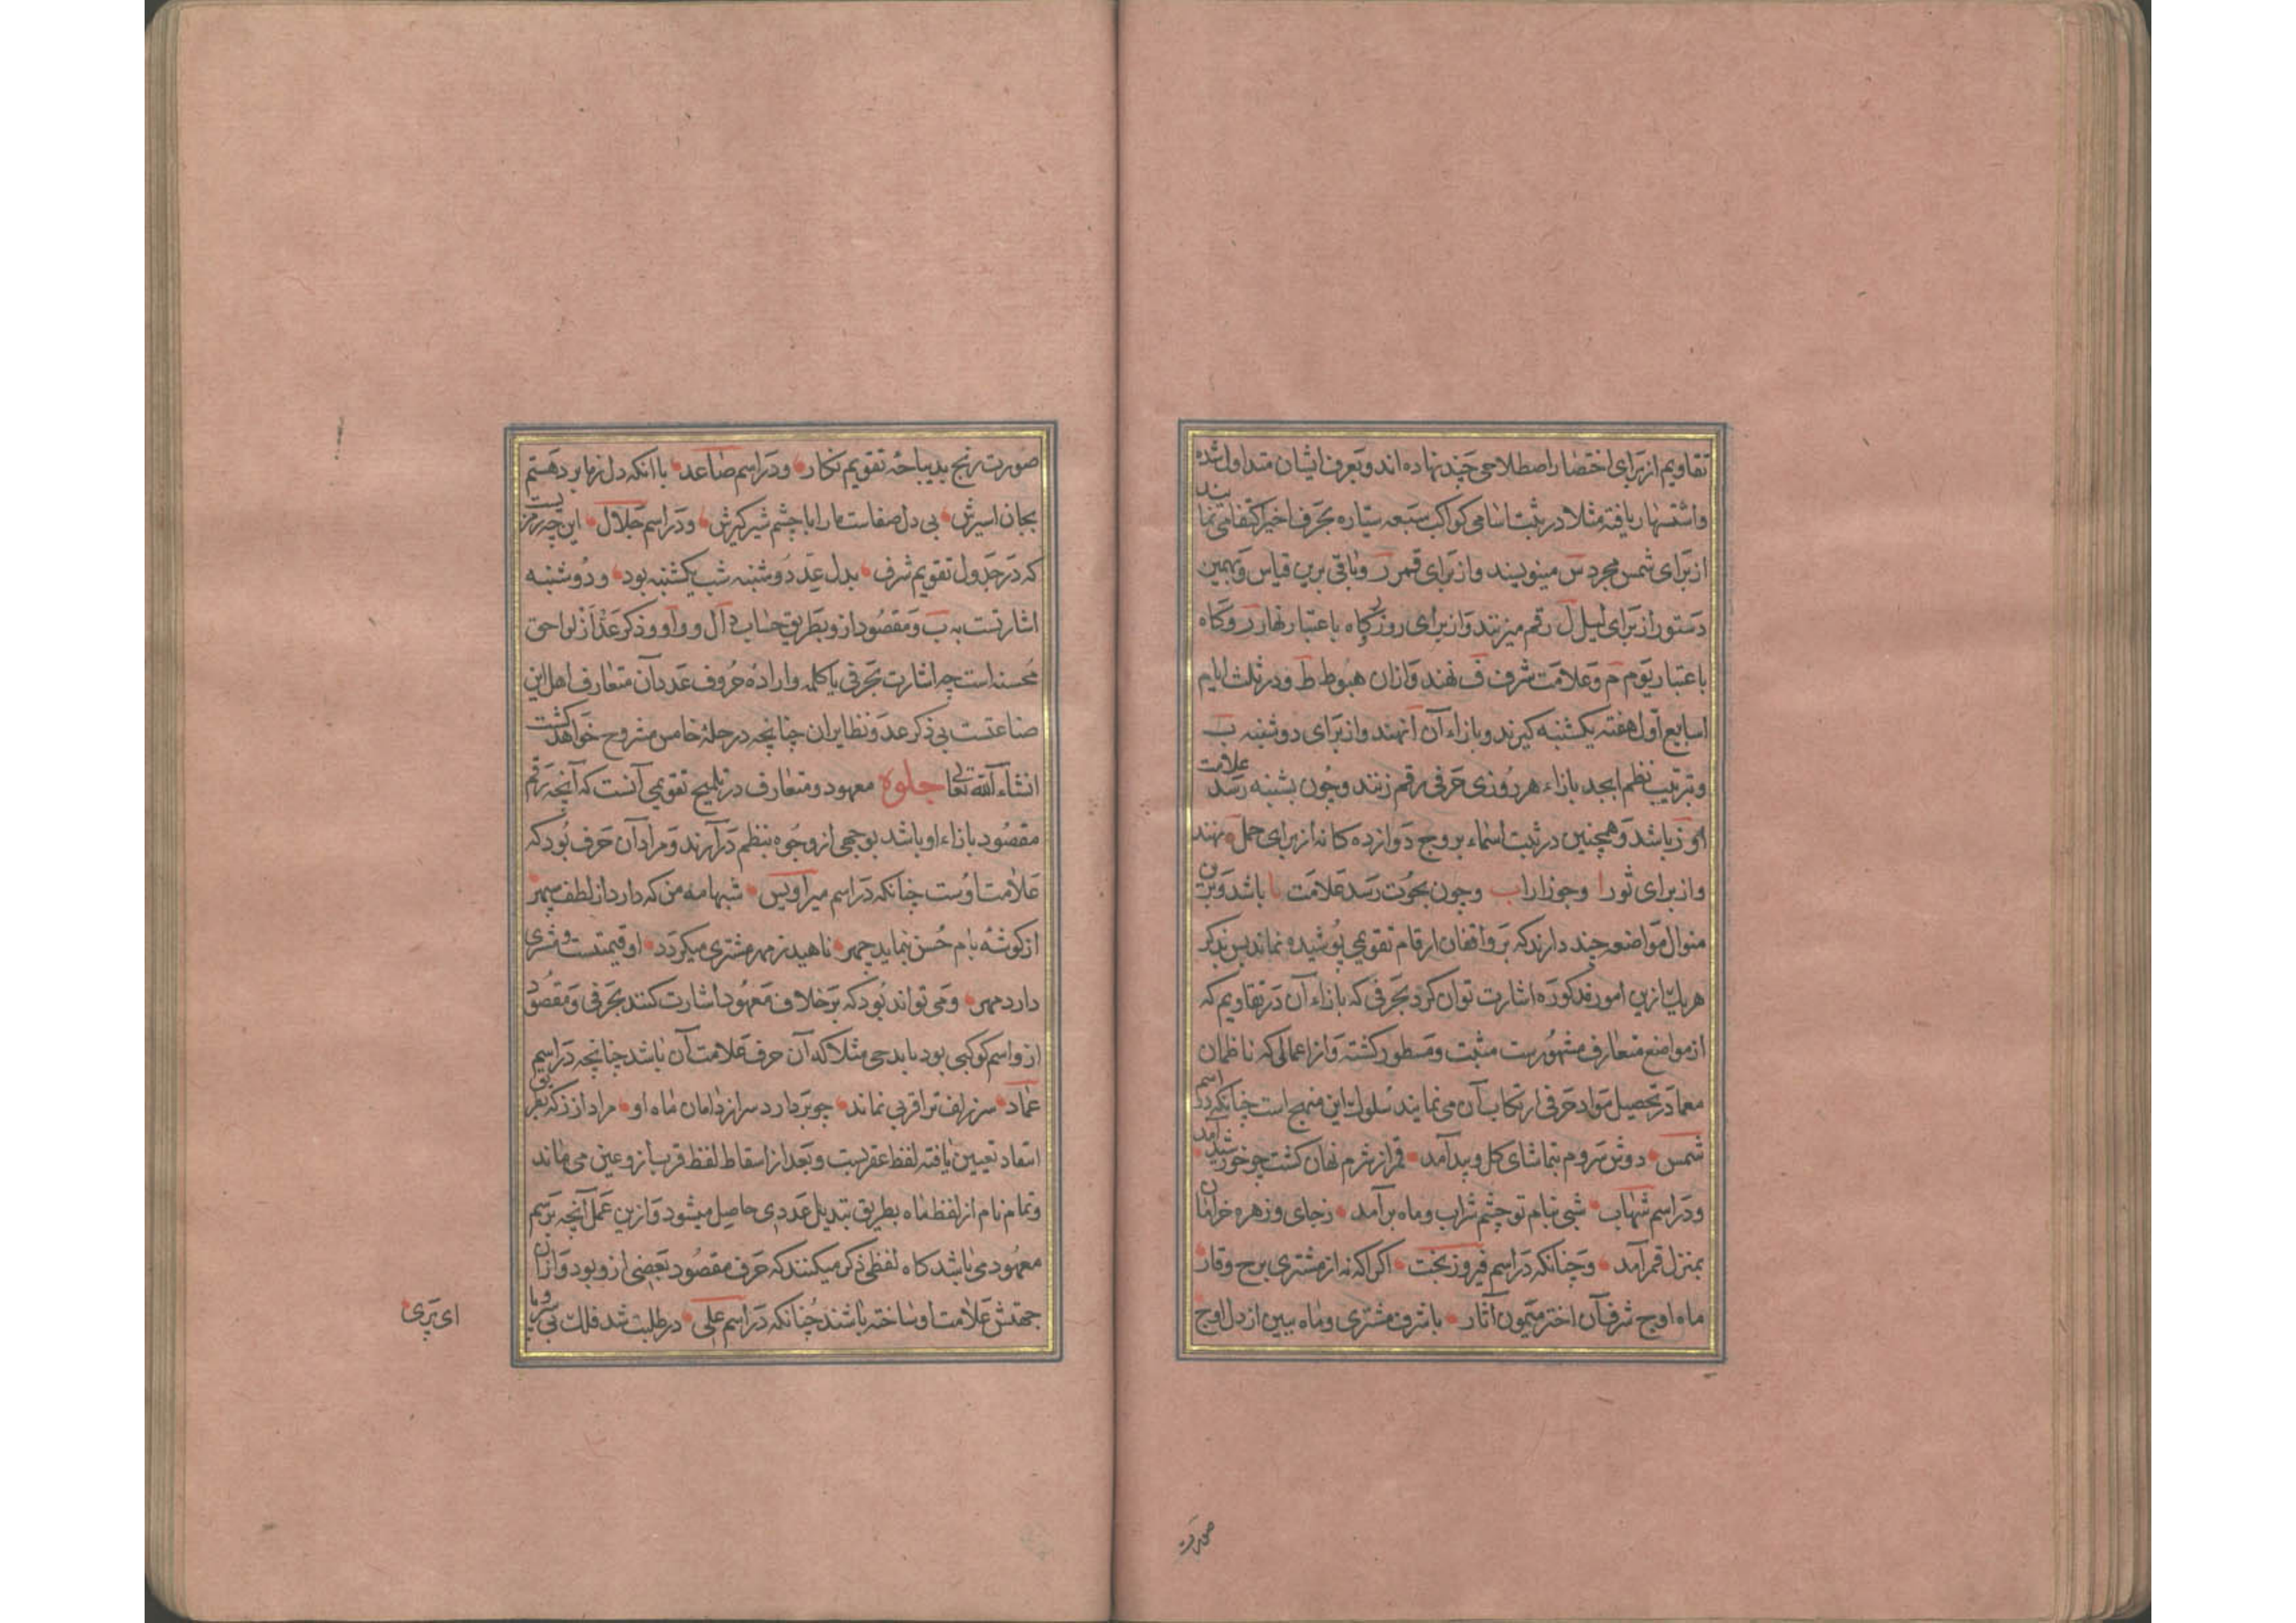 تقاویم از برای اختصار اصطلاحی چند نهاده اند و بعرف ایشان متداول شده
و اشتهار یافته مثلا در ثبت اسامی کواکب سبعه سیاره بحرف اخیر اکتفا می نمایند
از برای شمس مجرد س مینویسند و از برای قمر ر و باقی برین قیاس و بهمین
دستور از برای لیل ل رقم میزنند و از برای روز گاه باعتبار نهار ر و گاه
باعتبار یوم م و علامت شرف ف نهند و ازان هبوط ط و در ثلث ایام
اسابیع اول هفته یکشنبه گیرند و بازاء آن ا نهند و از برای دوشنبه ب
و بترتیب نظم ابجد بازاء هر روزی حرفی رقم زنند و چون بشنبه رسد علامت
او ز باشد و همچنین در ثبت اسماء بروج دوازده کانه از برای حمل نهند
و از برای ثور ا و جوزا را ب و چون بحوت رسد علامت یا باشد و برین
منوال مواضعه چند دارند که بر واقفان ارقام تقویمی پوشیده نماند پس بذکر
هر یک ازین امور مذکوره اشارت توان کرد بحرفی که بازاء آن در تقاویم که
از مواضع متعارف مشهورست مثبت و مسطور کشته و از اعمالی که ناظمان
معما در تحصیل مواد حرفی ارتکاب آن می نمایند سلوک این منهج است چنانکه در اسم
شمس دوش سروم بتماشای کل و بید آمد قمر از شرم نهان کشت چو خورشید آمد
و در اسم شهاب شبی بنام تو چشم شراب و ماه برآمد زجای و زهره خرامان
بمنزل قمر آمد و چنانکه در اسم فیروزبخت اکر اکه نه از مشتری برج وقار
ماه اوج شرف آن اختر میمون آثار با شرف مشتری و ماه ببین از دل اوج
صورت
صورت رنج بدیباچه تقویم نکار و در اسم صاعد با انکه دل زما برد هستم
بجان اسیرش بی دل صفاست مارا با چشم شیرکیرش و در اسم جلال این چه رمز یست
که در جدول تقویم شرف بدل عد دوشنبه شب یکشنبه بود و دوشنبه
اشارتست به ب و مقصود ازو بطریق حساب دال و واو و ذکر عد از لواحق
محسنه است چه اشارت بحرفی یا کلمه و اراده حروف عدد آن متعارف اهل این
صناعتست بی ذکر عد و نظایر ان چنانچه در حله خامس مشروح خواهد کشت
انشاء الله تعالی جلوه معهود و متعارف در تلمیح تقویمی آنست که آنچه رقم
مقصود بازاء او باشد بوجهی از وجوه بنظم در آرند و مراد آن حرف بود که
علامت اوست چنانکه در اسم میر اویس شبها مه من که دارد از لطف سپهر
از کوشه بام حسن بنماید چهر ناهید ز مهر مشتری میکردد او قیمتست و مشتری
دارد مهر و می تواند بود که بر خلاف معهود اشارت کنند بحرفی و مقصود
ازو اسم کوکبی بود یا برجی مثلا که آن حرف علامت آن باشد چنانچه در اسم
عماد سر زلف ترا قربی نماند چو بردارد سر از دامان ماه او مراد از ز که بقرینه
اسقاد تعیین یافته لفظ عقربست و بعد از اسقاط لفظ قرب ازو عین می ماند
و تمام نام از لفظ ماه بطریق تبدیل عددی حاصل میشود و ازین عمل آنچه برسم
معهود می باشد کاه لفظی ذکر میکنند که حرف مقصود بعضی ازو بود و ازان
جهتش علامت او ساخته باشند چنانکه در اسم علی در طلبت شد فلک بی سر و پا
ای پری